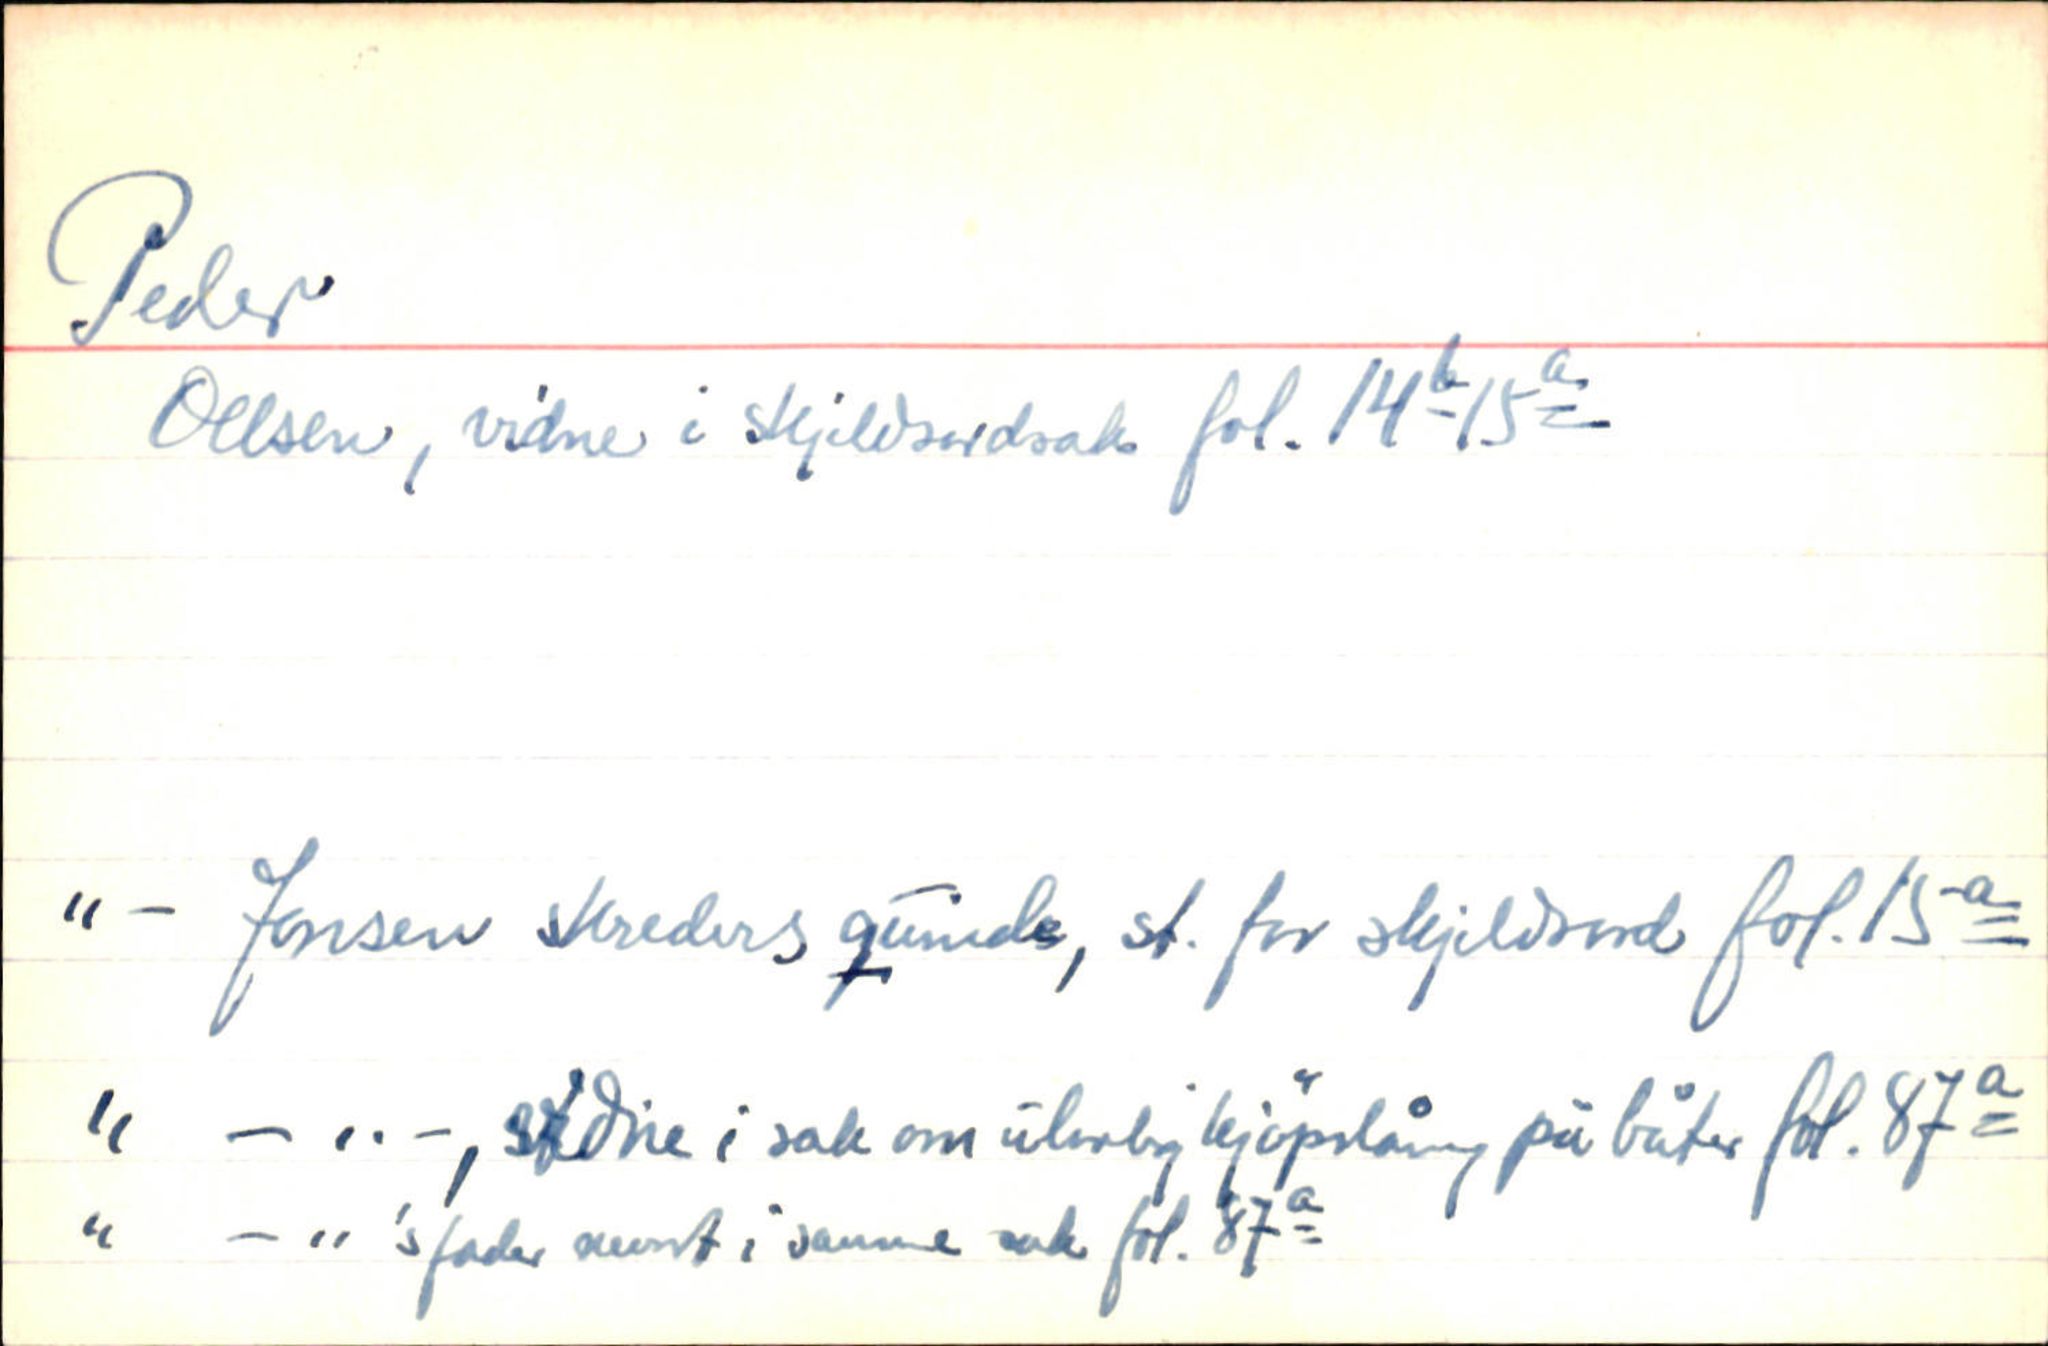 Peder
Ollsen, vidne i skjeldsordsak fol. 14b-15a
"- Jonsen skreders quinde, st. for skjeldsord fol. 15a
" - " -, vidne i sak om ulovlig kjöpslång på båter fol. 87a
" - " 's fader nevnt i samme sak fol. 87a